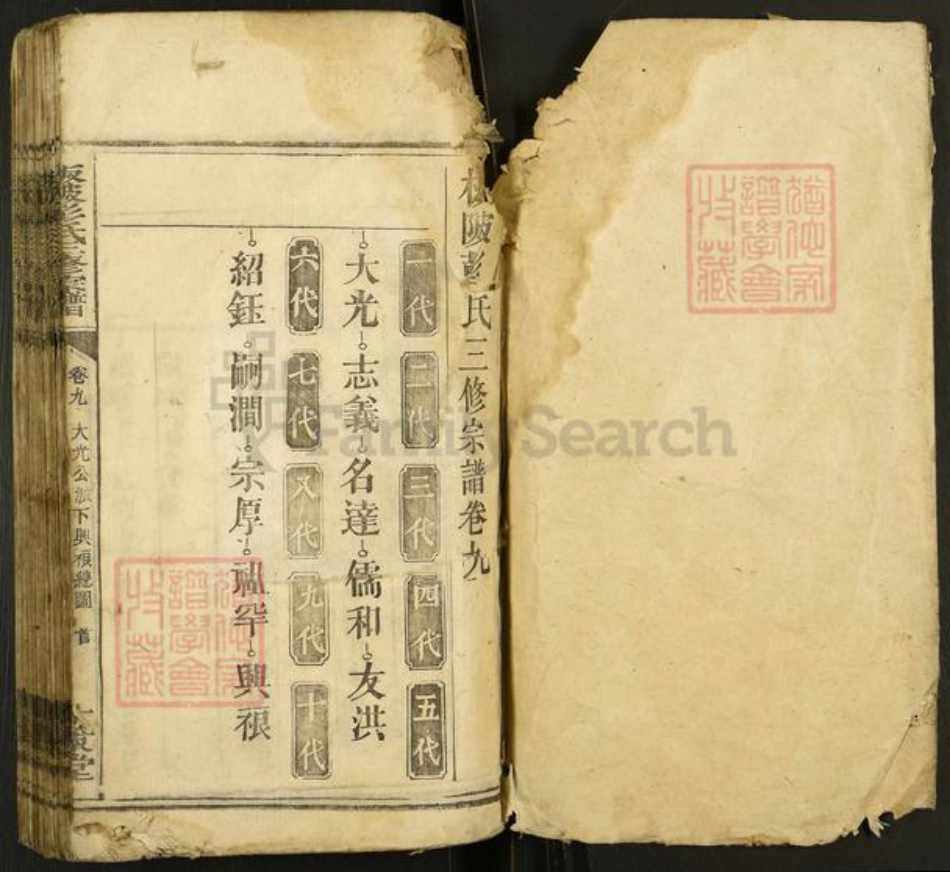 板陂彭氏三修宗譜卷九
一代 二代 三代 四代 五代
大光 志義 名達 儒和 友洪
六代 七代 八代 九代 十代
紹鈺 嗣澗 宗厚 祉罕 興裉
板陂彭氏三修宗譜
卷九 大光公派下興裉總圖 首
堂
譜學會
收藏
譜學會
收藏
FamilySearch